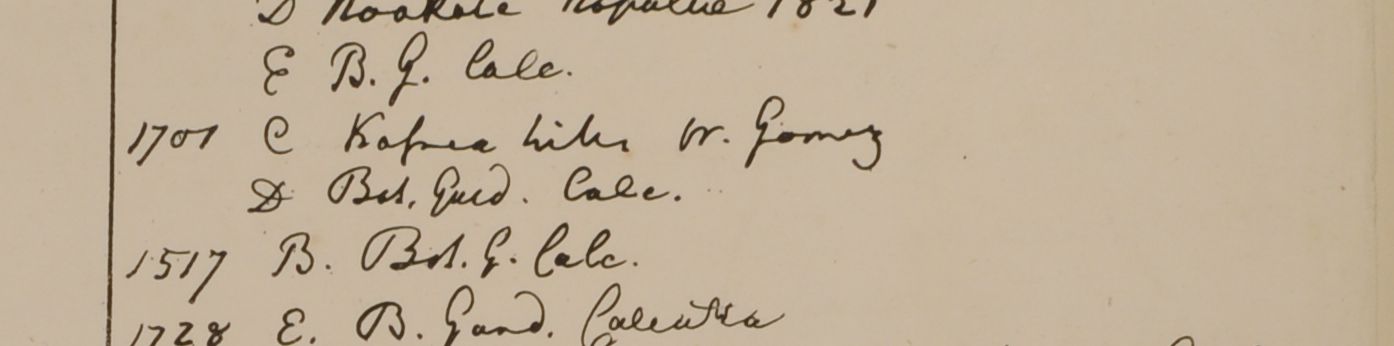 D Noakote Nopalie 1821
E B. G. Calc.
1701 C Kasnea hills W. Gomez
D Bot. Gard. Calc.
1517 B. Bot. G. Calc.
1728 E. B. Gard. Calcutta